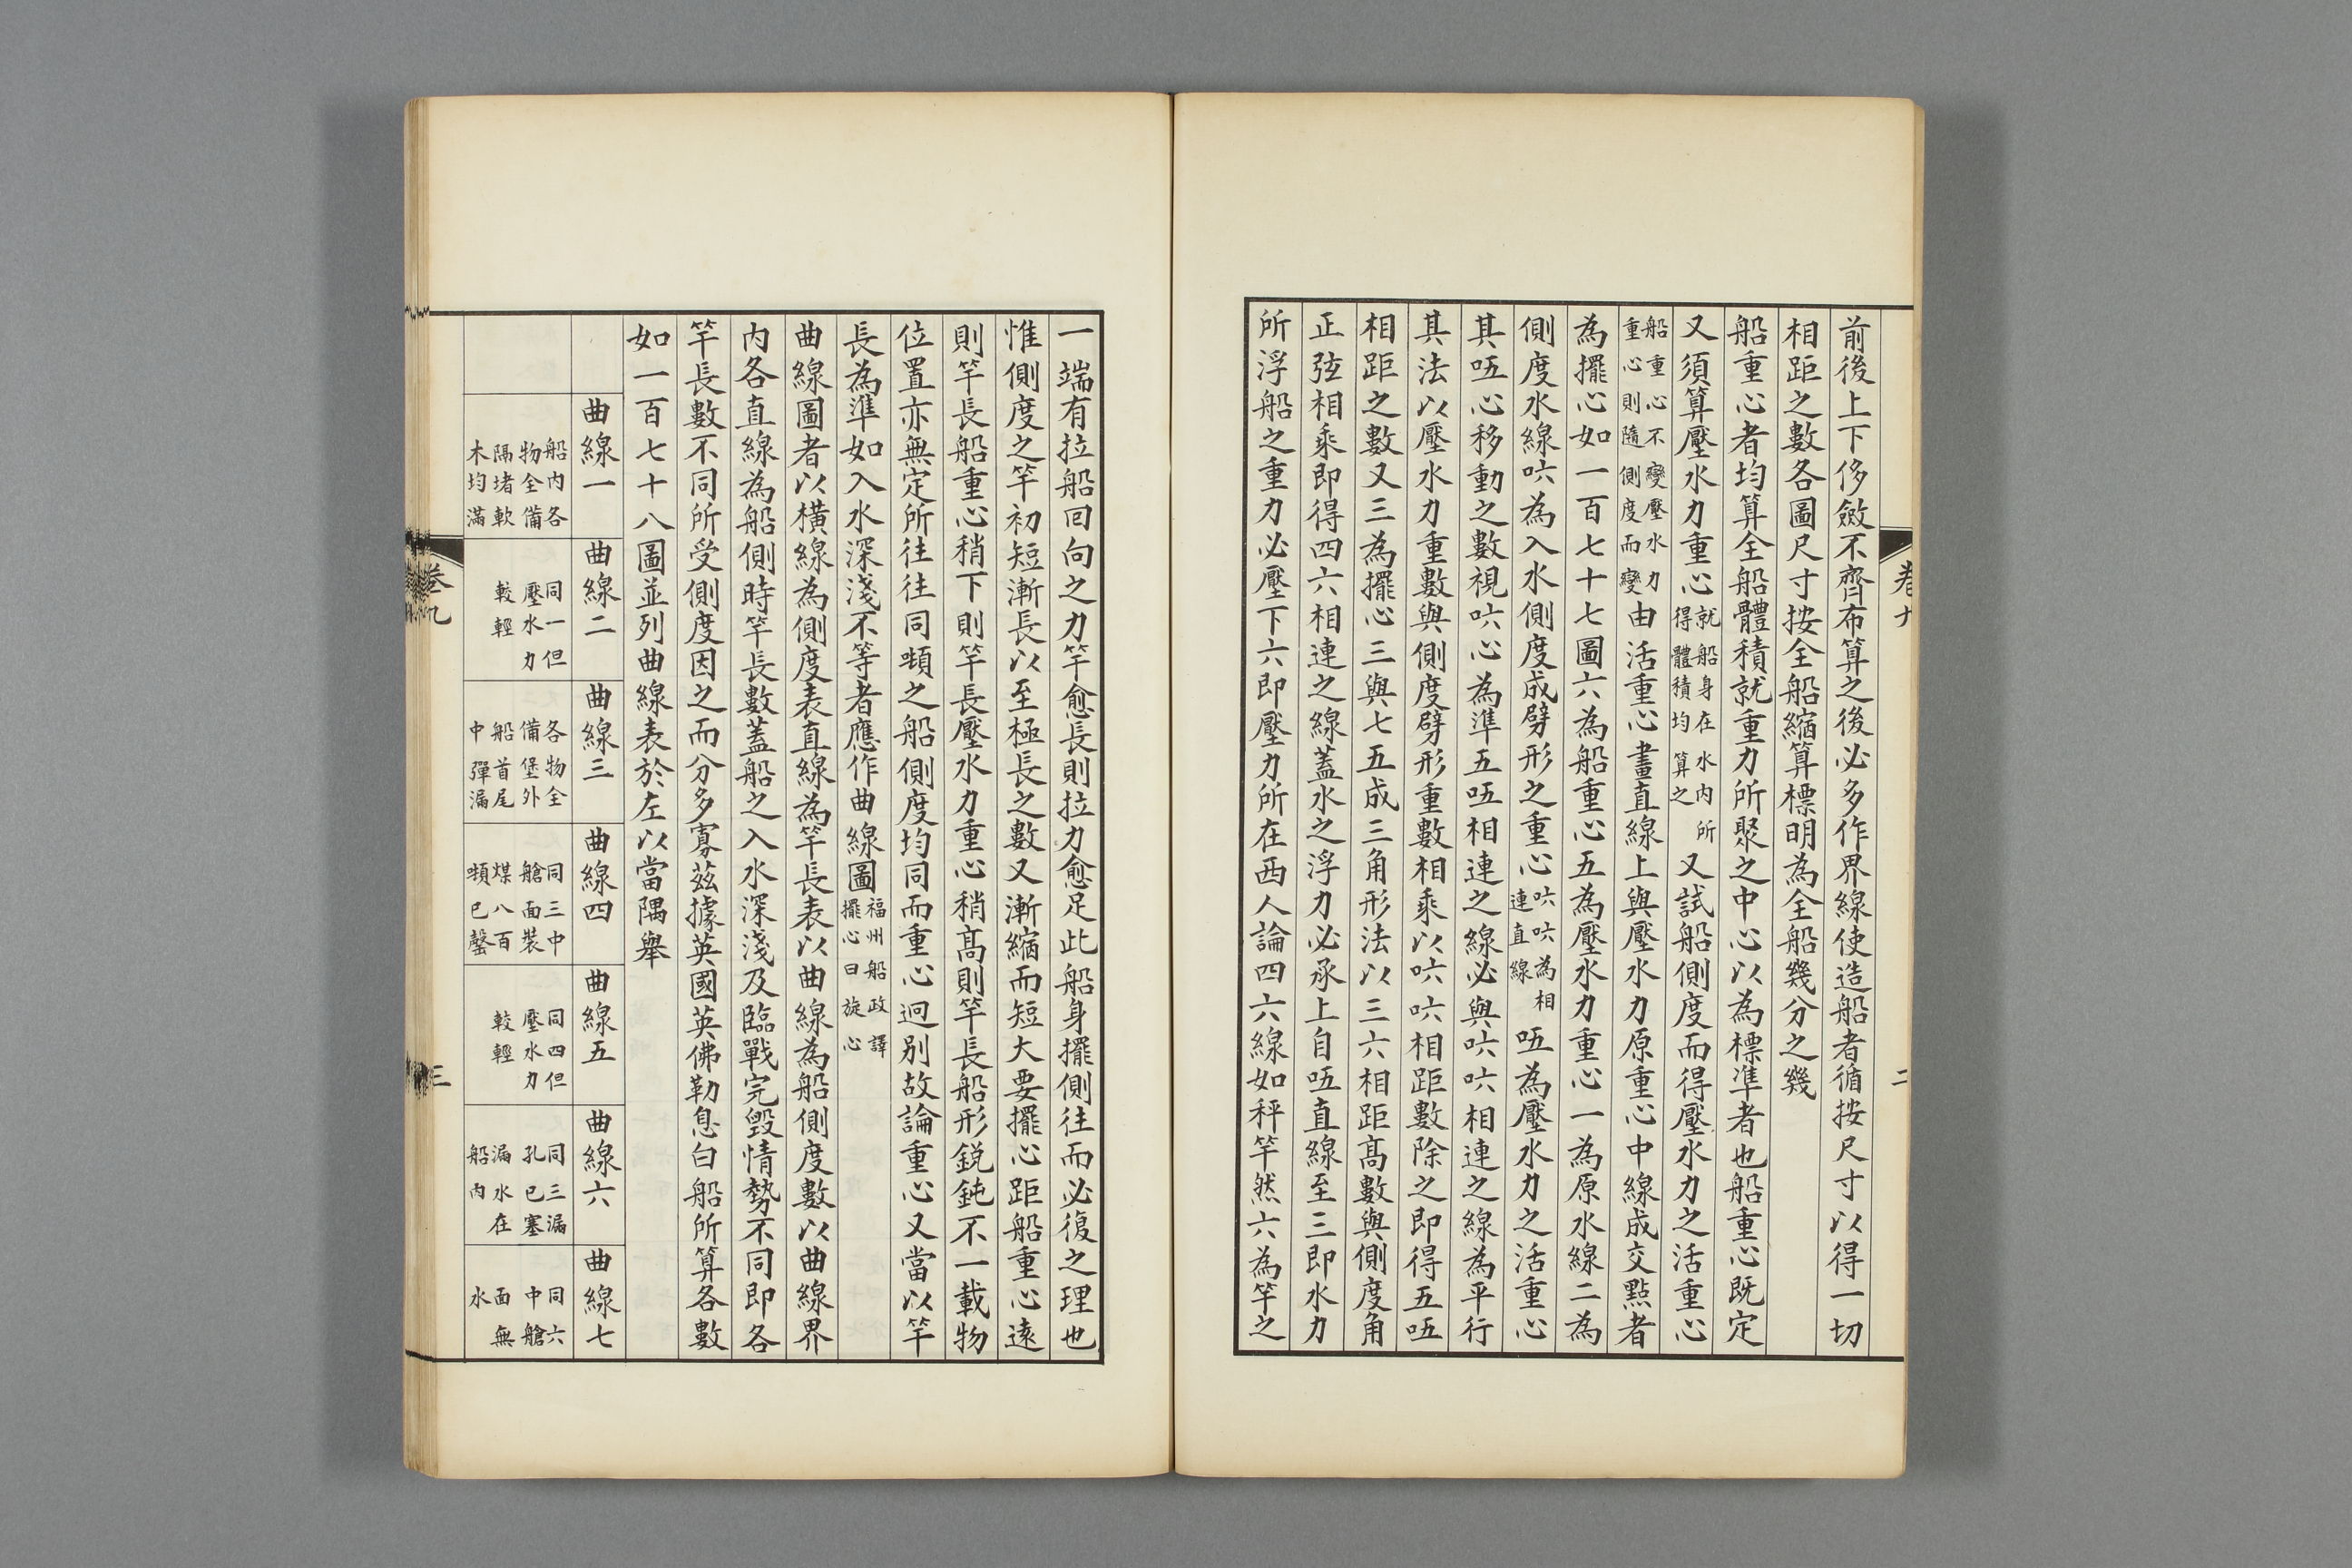 前後上下侈斂不齊布算之後必多作界線使造船者循按尺寸以得一切
相距之數各圖尺寸按全船縮算標明為全船幾分之幾
船重心者均算全船體積就重力所聚之中心以為標準者也船重心既定
又須算壓水力重心就船身在水內所得體積均算之又試船側度而得壓水力之活重心
船重心不變壓水力重心則隨側度而變由活重心畫直線上與壓水力原重心中線成交點者
為擺心如一百七十七圖六為船重心五為壓水力重心一為原水線二為
側度水線吰為入水側度成劈形之重心吰吰為相連直線𠵇為壓水力之活重心
其𠵇心移動之數視吰心為準五𠵇相連之線必與吰吰相連之線為平行
其法以壓水力重數與側度劈形重數相乘以吰吰相距數除之即得五𠵇
相距之數又三為擺心三與七五成三角形法以三六相距高數與側度角
正弦相乘即得四六相連之線蓋水之浮力必承上自𠵇直線至三即水力
所浮船之重力必壓下六即壓力所在西人論四六線如秤竿然六為竿之
卷九
二
一端有拉船回向之力竿愈長則拉力愈足此船身擺側往而必復之理也
惟側度之竿初短漸長以至極長之數又漸縮而短大要擺心距船重心遠
則竿長船重心稍下則竿長壓水力重心稍高則竿長船形銳鈍不一載物
位置亦無定所往往同噸之船側度均同而重心迥別故論重心又當以竿
長為準如入水深淺不等者應作曲線圖福州船政譯擺心曰旋心
曲線圖者以橫線為側度表直線為竿長表以曲線為船側度數以曲線界
內各直線為船側時竿長數蓋船之入水深淺及臨戰完毀情勢不同即各
竿長數不同所受側度因之而分多寡茲據英國英佛勒息白船所算各數
如一百七十八圖並列曲線表於左以當隅舉
曲線一
船內各物全備隔堵軟木均滿
曲線二
同一但壓水力較輕
曲線三
各物全備堡外船首尾中彈漏
曲線四
同三中艙面裝煤八百噸已罄
曲線五
同四但壓水力較輕
曲線六
同三漏孔已塞漏水在船內
曲線七
同六中艙面無水
卷九
三